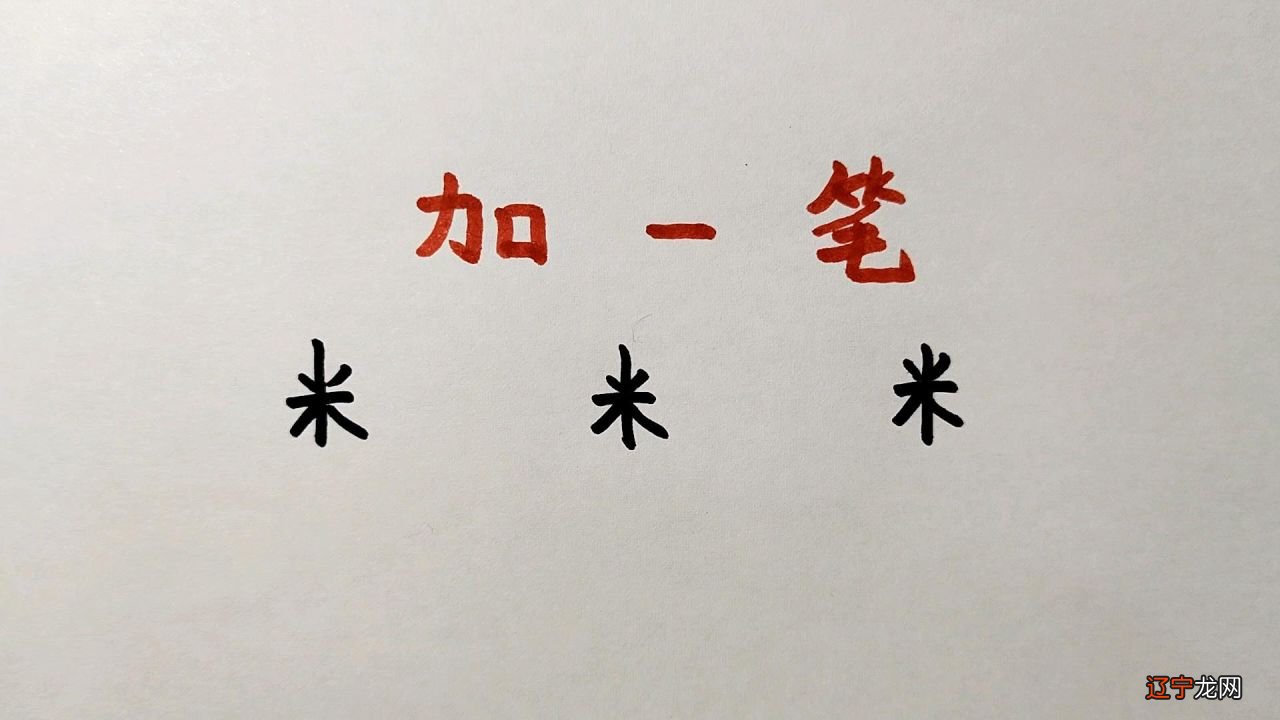 加 一 笔
米 米 米
辽宁龙网